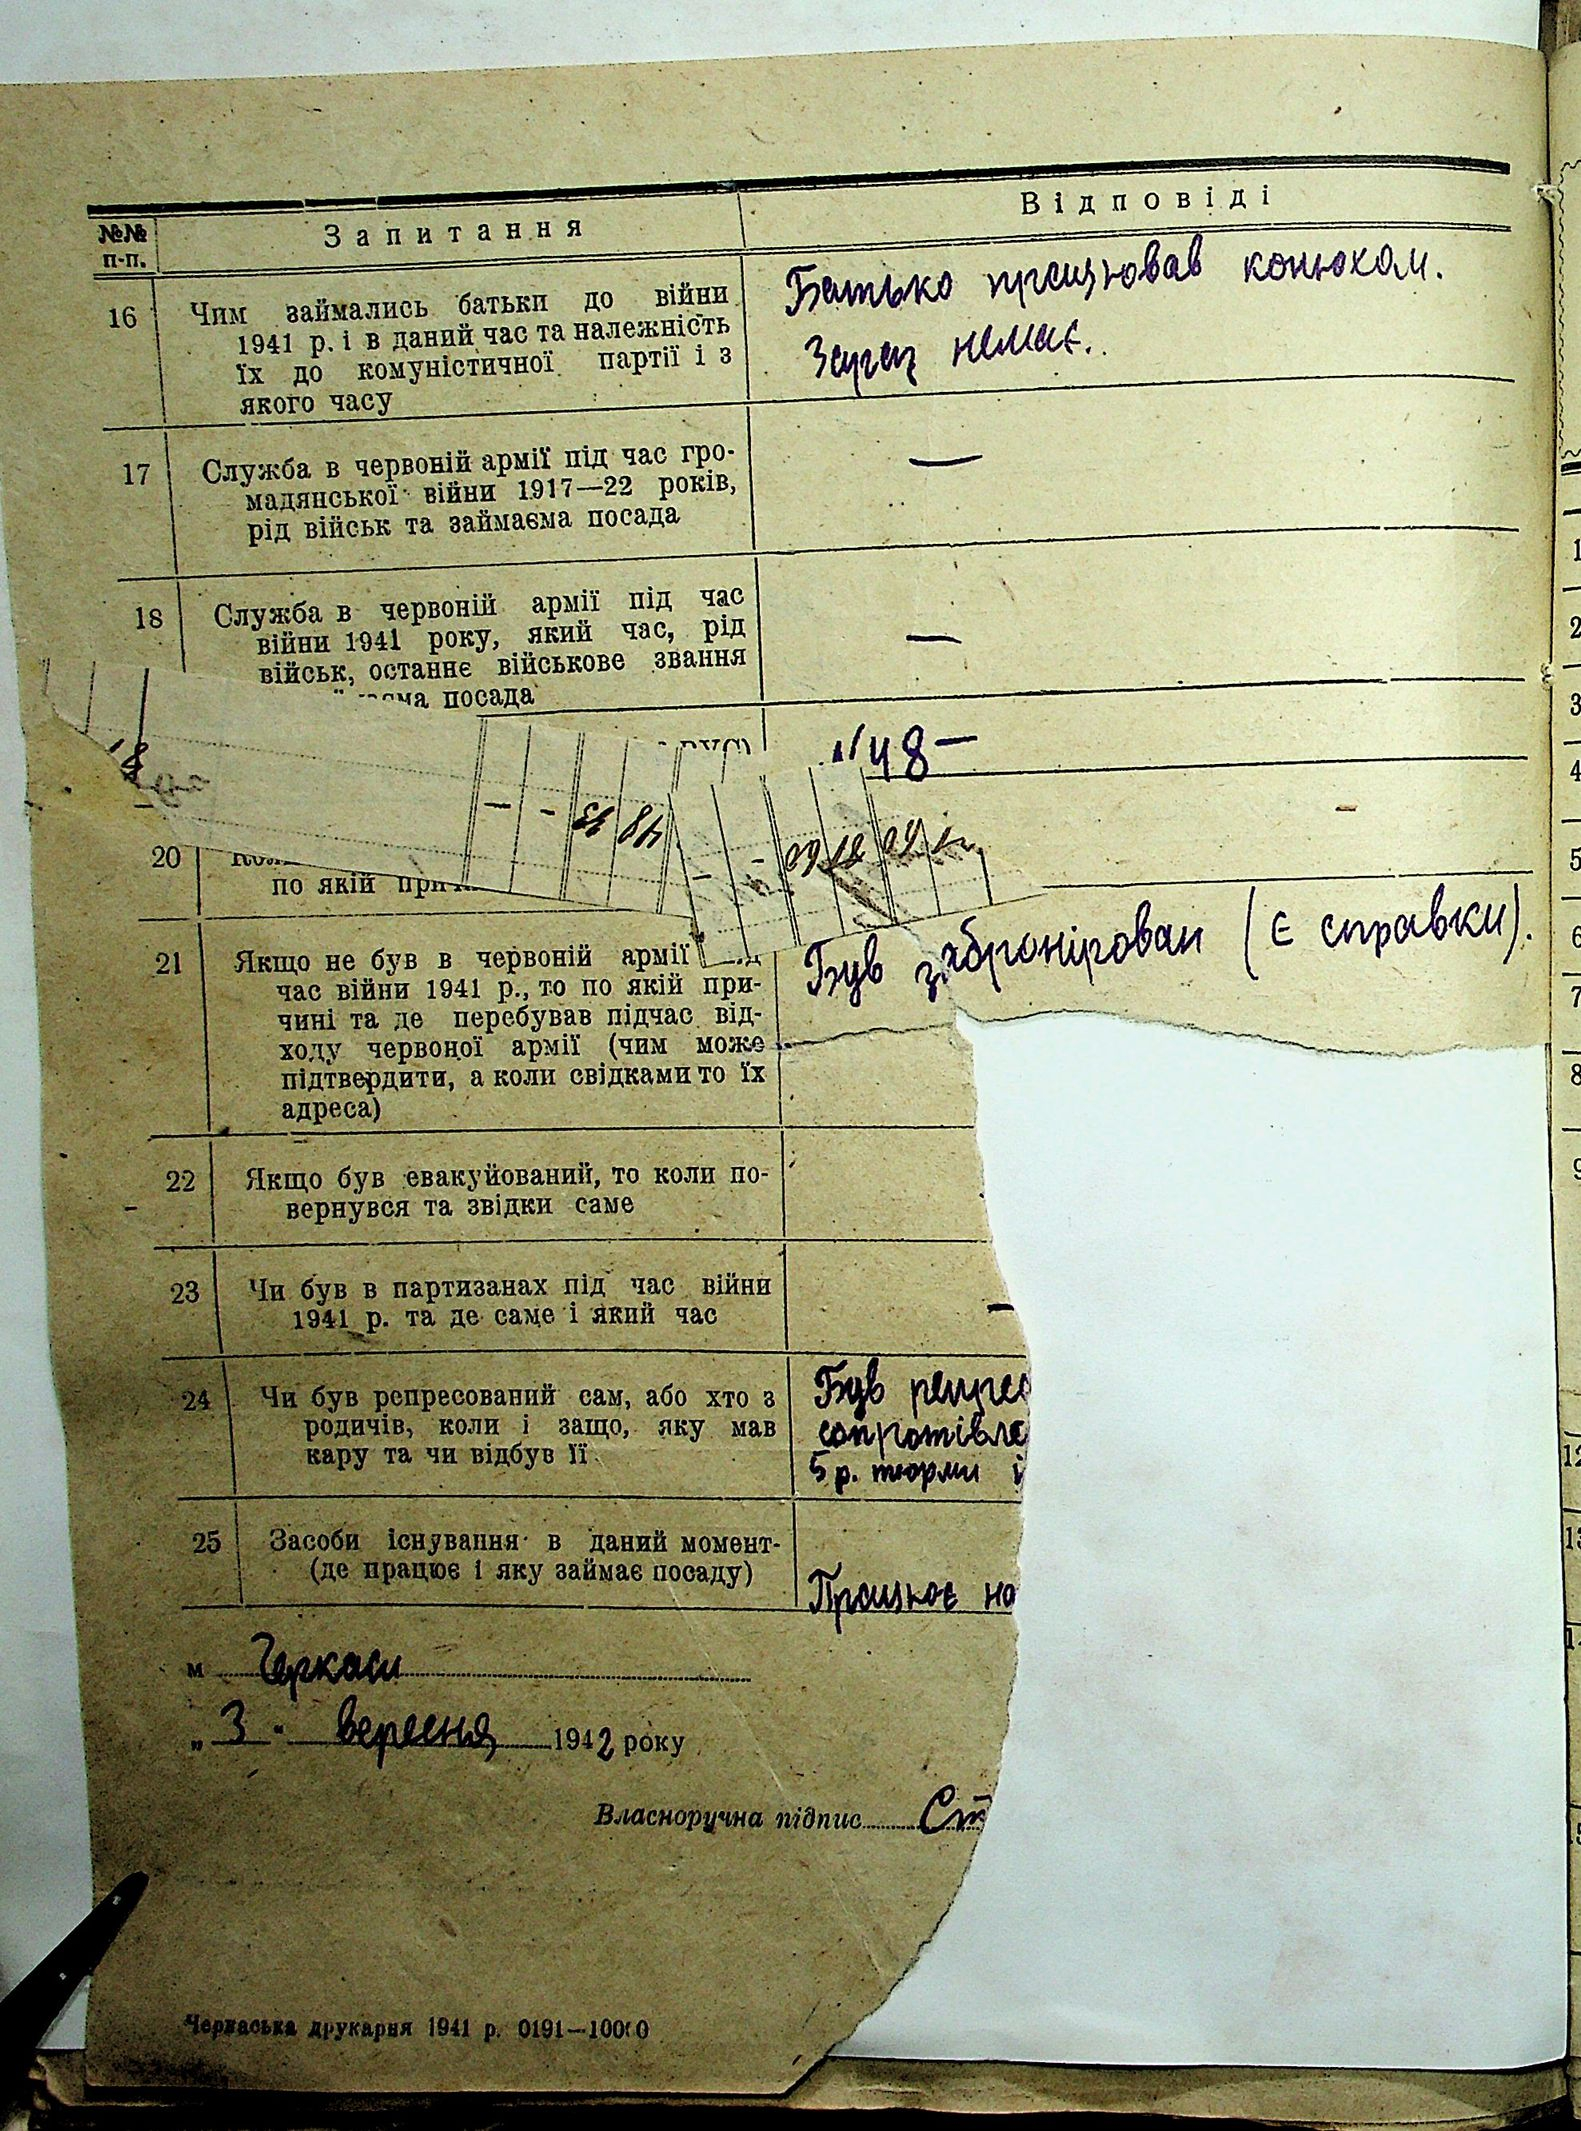 №№ п-п.
Запитання
Відповіді
16
Чим займались батьки до війни
1941 р. і в даний час та належність
їх до комуністичної партії і з
якого часу
Батько працював конюхом.
Зараз немає.
17
Служба в червоній армії під час гро-
мадянської війни 1917—22 років,
рід військ та займаєма посада
—
18
Служба в червоній армії під час
війни 1941 року, який час, рід
військ, останнє військове звання
посада
—
48 —
48
20
по якій
—
21
Якщо не був в червоній армії
час війни 1941 р., то по якій при-
чині та де перебував підчас від-
ходу червоної армії (чим може
підтвердити, а коли свідками то їх
адреса)
Був забронірован (є справки).
22
Якщо був евакуйований, то коли по-
вернувся та звідки саме
23
Чи був в партизанах під час війни
1941 р. та де саме і який час
—
24
Чи був репресований сам, або хто з
родичів, коли і защо, яку мав
кару та чи відбув її
Був репрес
сопротівле
5 р. тюрми і
25
Засоби існування в даний момент-
(де працює і яку займає посаду)
Працює на
м Черкаси
„ 3 " вересня 1942 року
Власноручна підпис Ст
Черкаська друкарня 1941 р. 0191—10000
1
2
3
4
5
6
7
8
9
12
13